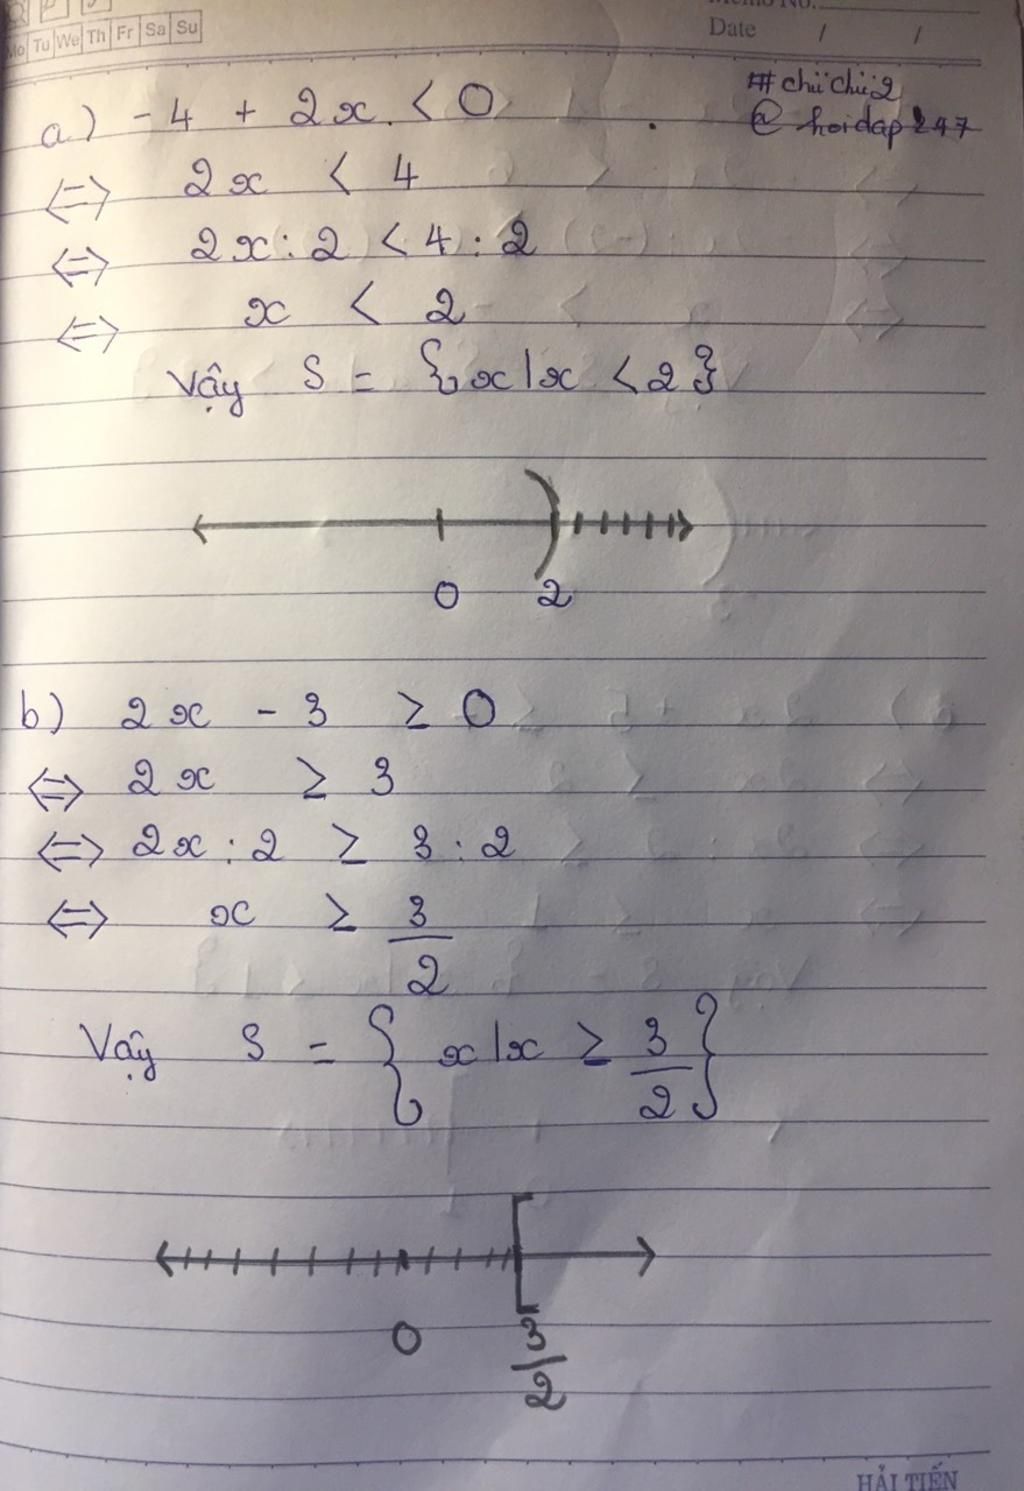 Memo No.
Mo Tu We Th Fr Sa Su
Date / /
#chüchü2
@hoidap247
a) -4 + 2x < 0
⇔ 2x < 4
⇔ 2x : 2 < 4 : 2
⇔ x < 2
Vậy S = {x|x < 2}
0 2
b) 2x - 3 ≥ 0
⇔ 2x ≥ 3
⇔ 2x : 2 ≥ 3 : 2
⇔ x ≥ 3/2
Vậy S = {x|x ≥ 3/2}
0 3/2
HẢI TIẾN